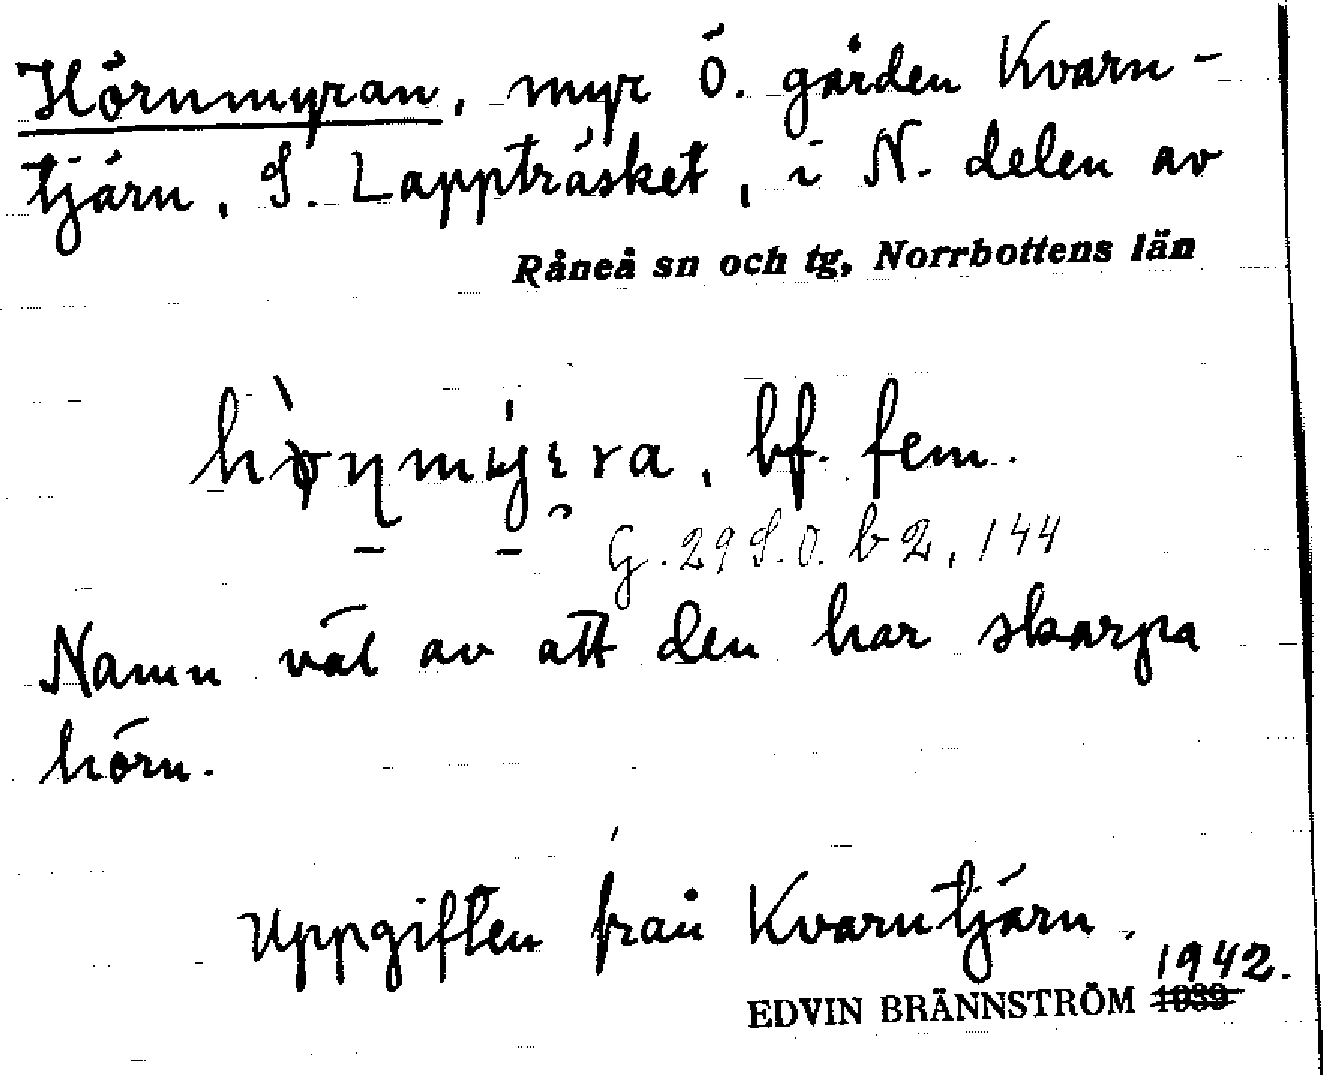 Hörnmyran, myr Ö. gården Kvarn-
tjärn, S. Lappträsket, i N. delen av
Råneå sn och tg, Norrbottens län
bf. fem.
G. 29 S.O. b 2, 144
Namn väl av att den har skarpa
hörn.
Uppgiften från Kvarntjärn.
1942.
EDVIN BRÄNNSTRÖM 1939